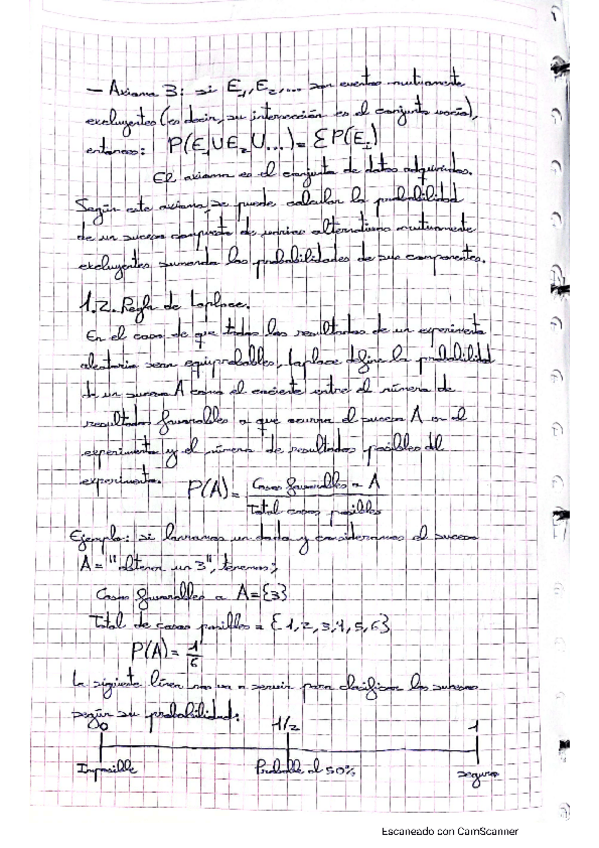 - Axioma 3: si E₁, E₂,... son eventos mutuamente
excluyentes (es decir, su intersección es el conjunto vacío),
entonces: P(E₁UE₂U...)= ΣP(E₁)
El axioma es el conjunto de datos adquiridos.
Según este axioma, se puede calcular la probabilidad
de un suceso compuesto de varias alternativas mutuamente
excluyentes sumando las probabilidades de sus componentes.
1.2. Regla de Laplace.
En el caso de que todos los resultados de un experimento
aleatorio sean equiprobables, Laplace define la probabilidad
de un suceso A como el cociente entre el número de
resultados favorables a que ocurra el suceso A en el
experimento y el número de resultados posibles del
experimento. P(A) = Casos favorables a A
Total casos posibles
Ejemplo: si lanzamos un dado y consideramos el suceso
A = "obtener un 3", tenemos;
Casos favorables a A={3}
Total de casos posibles = {1,2,3,4,5,6}
P(A) = 1/6
La siguiente línea nos va a servir para clasificar los sucesos
según su probabilidad:
0 1/2 1
Imposible Probable al 50% seguro
Escaneado con CamScanner